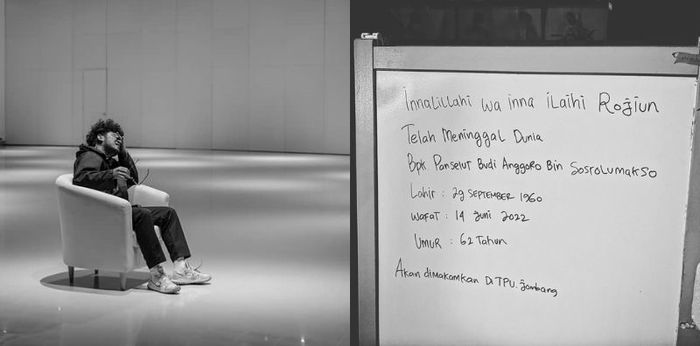 Innalillahi wa inna ilaihi Rojiun
Telah Meninggal Dunia
Bpk Panselut Budi Anggoro Bin Sosrolumakso
Lahir : 29 SEPTEMBER 1960
Wafat : 14 Juni 2022
Umur : 62 Tahun
Akan dimakamkan Di TPU. Jombang